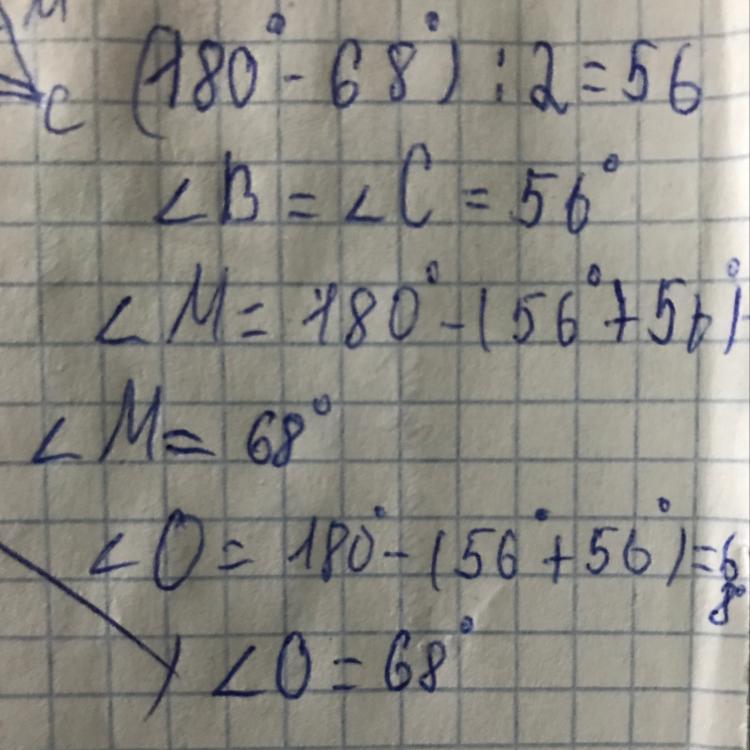 M
C
(180° - 68°) : 2 = 56
∠B = ∠C = 56°
∠M = 180° - (56° + 56°)
∠M = 68°
∠O = 180° - (56° + 56°) = 68°
∠O = 68°